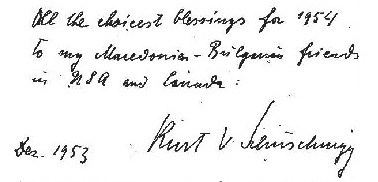 All the choicest blessings for 1954
to my Macedonian-Bulgarian friends
in USA and Canada:
Dez. 1953
Kurt v Schuschnigg